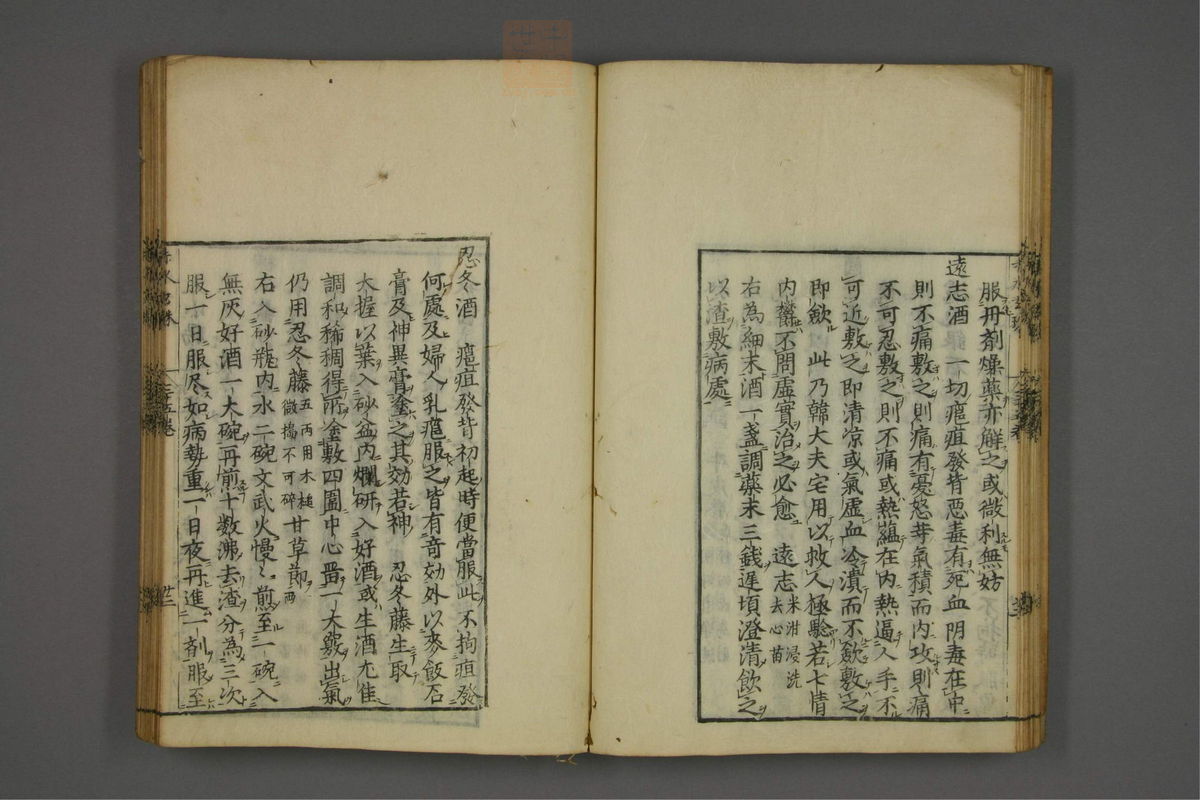 服丹剤燥藥亦解之或微利無妨
遠志酒　一切癰疽發背惡毒有死血陰毒在中
則不痛敷之則痛有憂怒等氣積而内攻則痛
不可忍敷之則不痛或熱蘊在内熱逼人手不
可近敷之即清凉或氣虛血冷潰而不斂敷之
即斂　此乃韓大夫宅用以救人極驗若七情
内欝不問虛實治之必愈　遠志米泔浸洗去心苗
右為細末酒一盞調藥末三銭遲頃澄清飲之
以渣敷病處
忍冬酒　癰疽發背初起時便當服此不拘疽發
何處及婦人乳癰服之皆有奇効外以麥飯石
膏及神異膏塗之其効若神　忍冬藤生取
大握以葉入砂盆内爛研入好酒或生酒尤佳
調和稀稠得所塗敷四圍中心畱一大竅出氣
仍用忍冬藤五两用木槌微搗不可碎甘草節両
右入砂瓶内水二碗文武火慢〻煎至一碗入
無灰好酒一大碗再煎十數沸去渣分為三次
服一日服尽如病勢重一日夜再進一剤服至